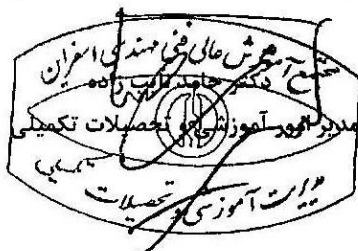 مجتمع آموزش عالی فنی مهندسی اسفراین
دکتر حامد نائب زاده
مدیر امور آموزشی و تحصیلات تکمیلی
مدیریت آموزشی و تحصیلات تکمیلی